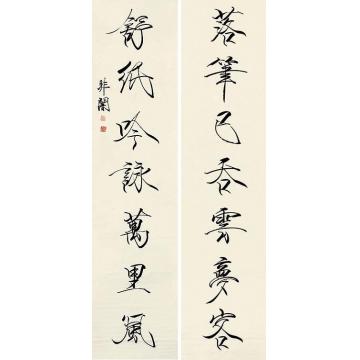 落筆已吞雲夢客
舒紙吟詠萬里風
非闇